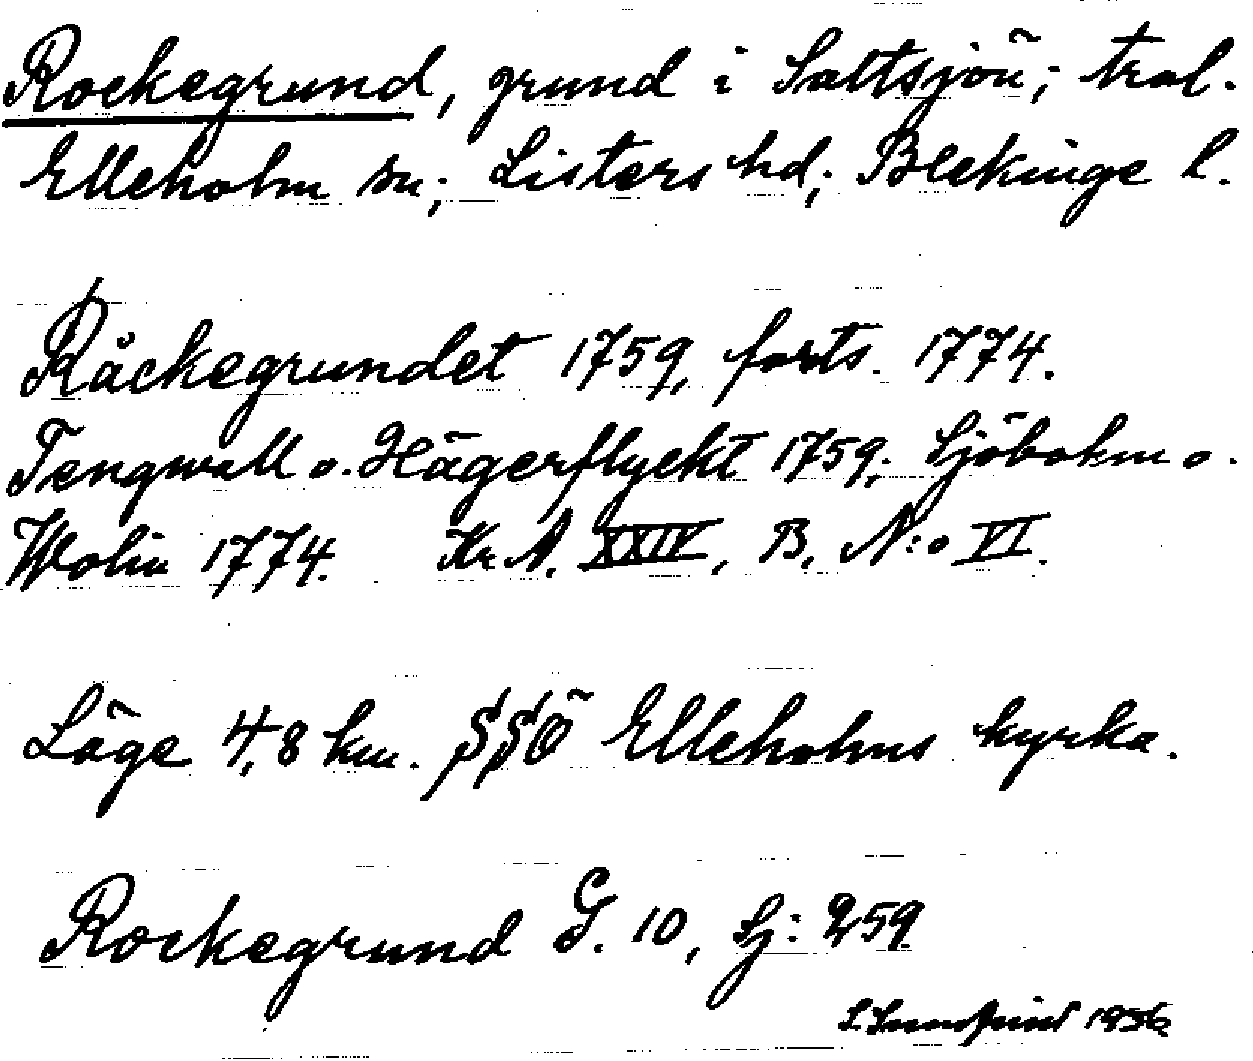 Rockegrund, grund i Saltsjön; trol.
Elleholm sn; Listers hd; Blekinge l.
Råckegrundet 1759, forts. 1774.
Tengwall o. Hägerflyckt 1759; Sjöbohm o.
Wolin 1774. Kr. A. XXIV, B, N:o VI.
Läge 4,8 km. SSÖ Elleholms kyrka.
Rockegrund G. 10, Sj: 259
1936